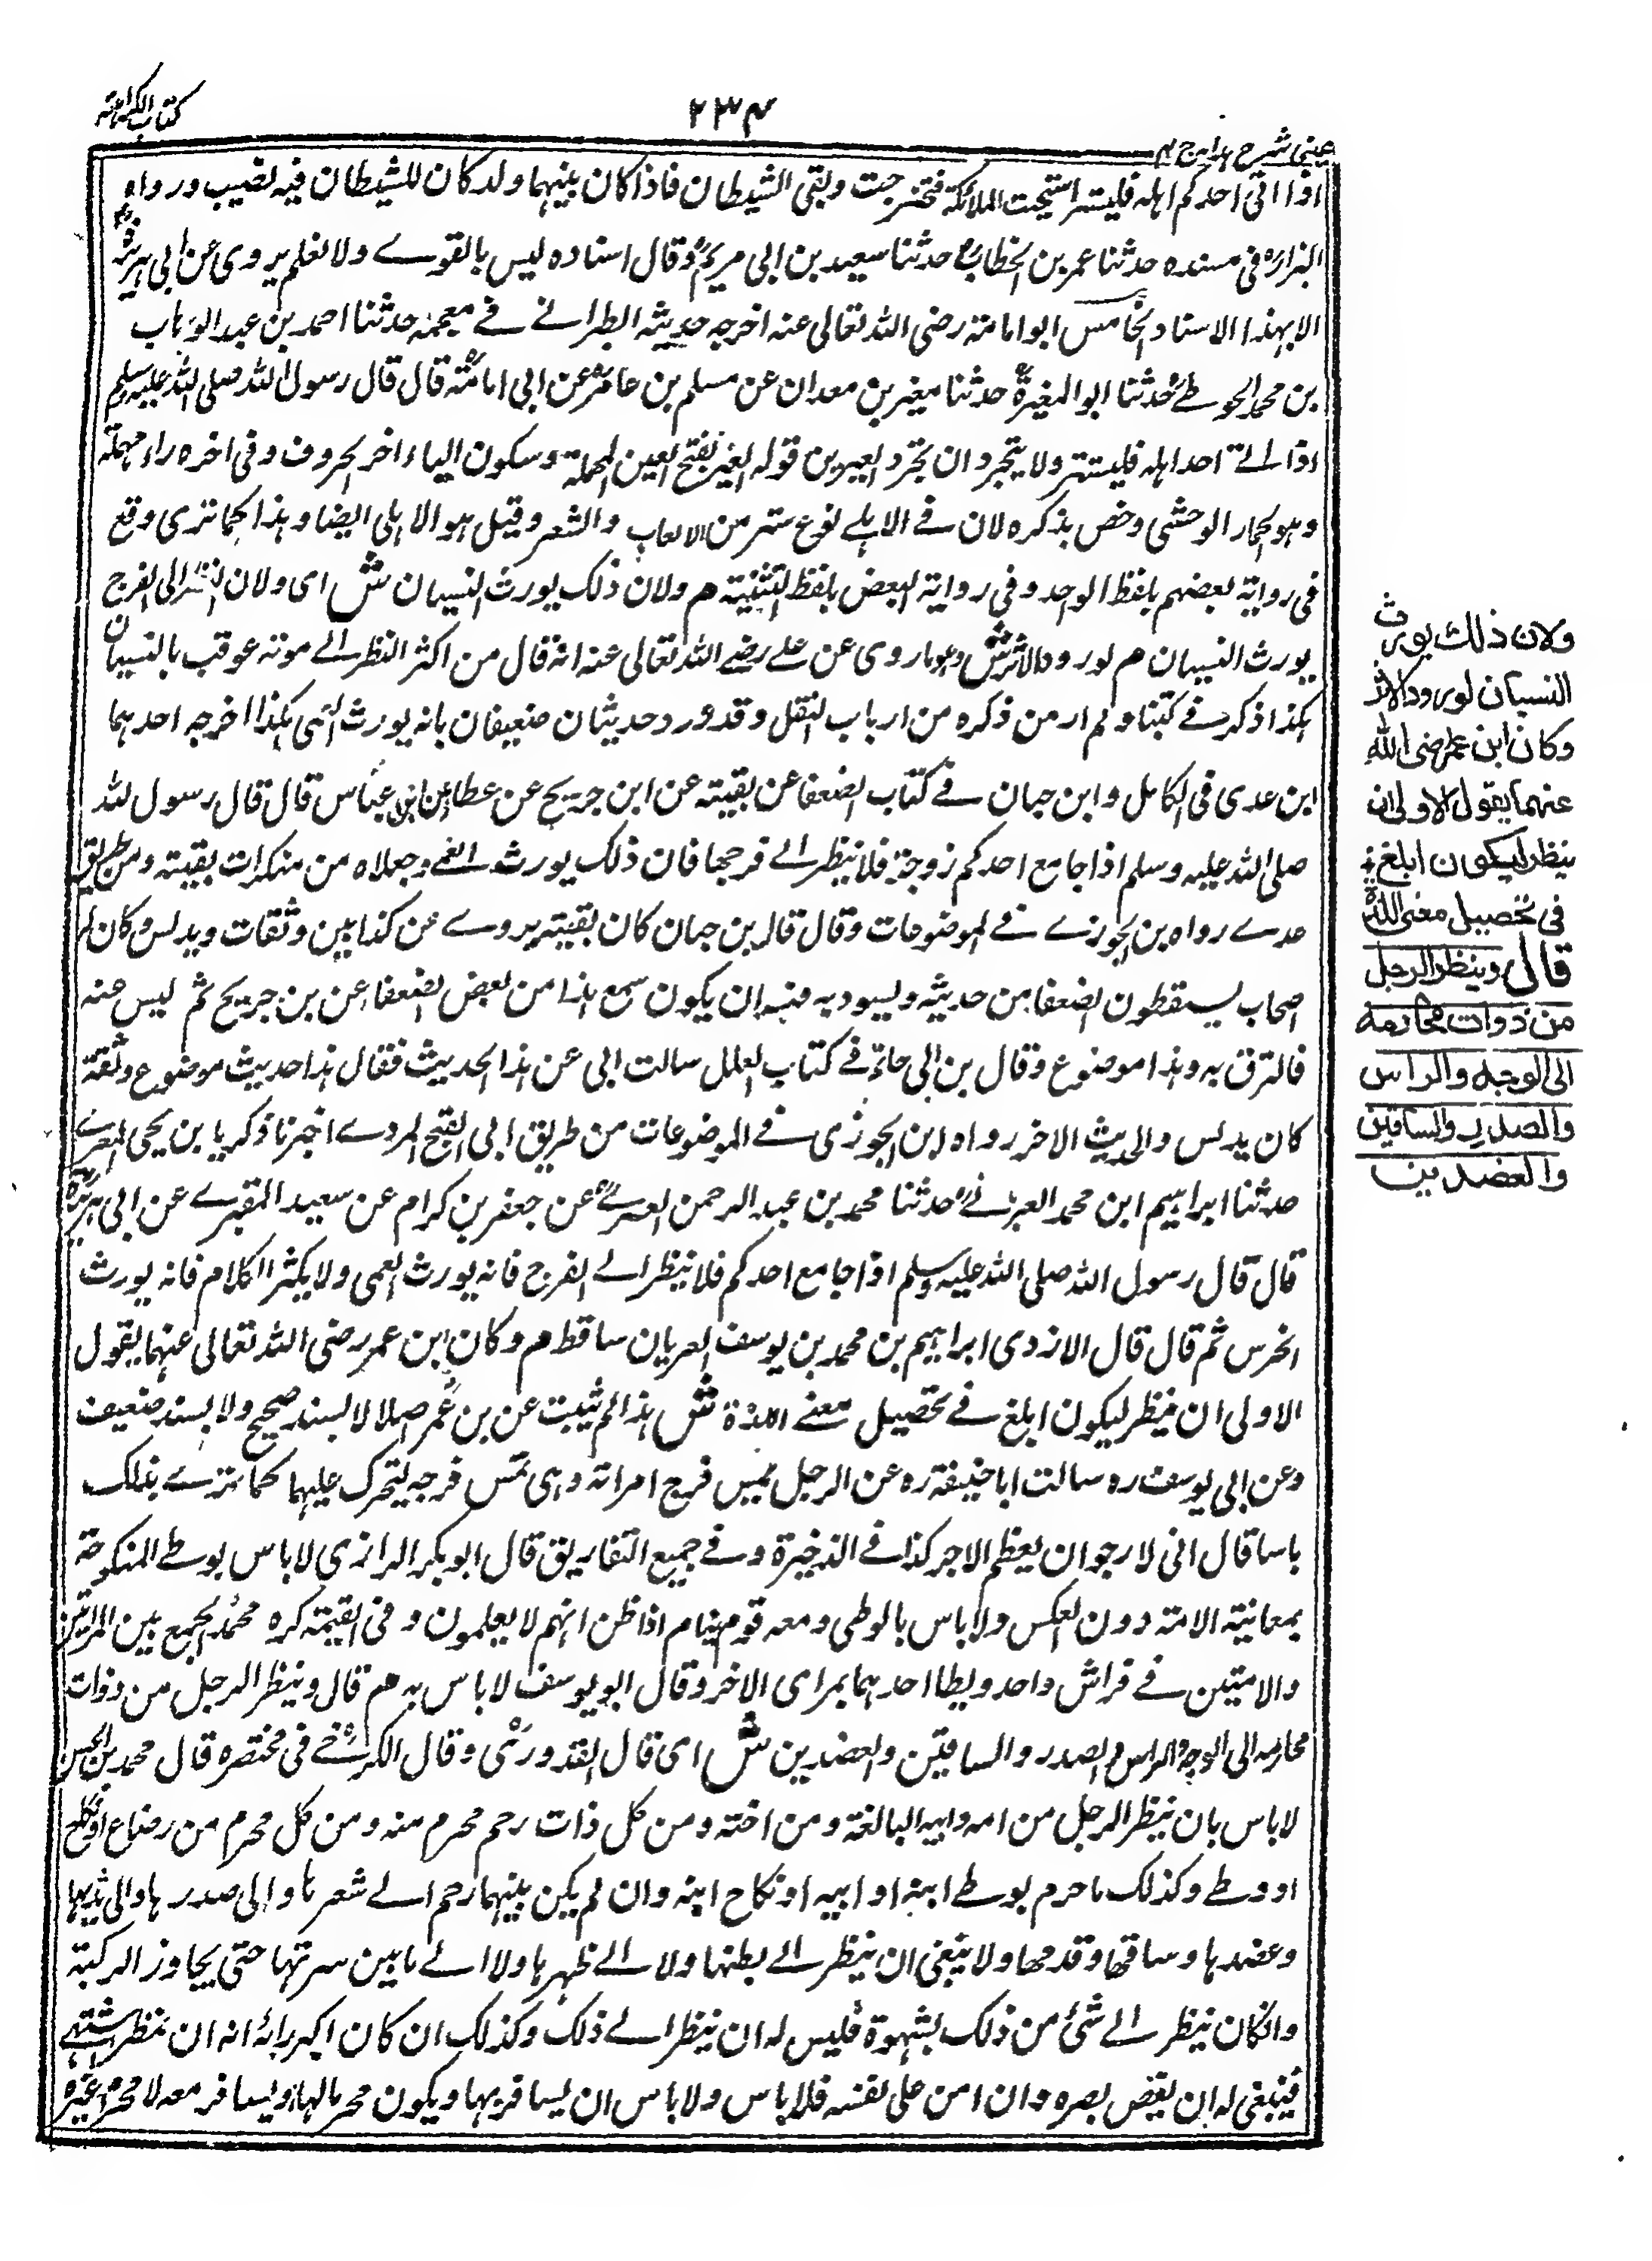 كتاب الكراهة
٢٣٤
عينى شرح هداية ج ٤
اذا اتى احدكم اهله فليستتر استحيت الملائكة فخرجت وبقى الشيطان فاذا كان بينهما ولد كان للشيطان فيه نصيب ورواه
البزار فى مسنده حدثنا عمر بن الخطاب حدثنا سعيد بن ابى مريم وقال اسناده ليس بالقوے ولا نعلم يروى عن ابى هريرة
الا بهذا الاسناد الخامس ابو امامة رضى الله تعالى عنه اخرج حديثه الطبرانے فے معجمه حدثنا احمد بن عبد الوهاب
بن محمد الحوطے حدثنا ابو المغيرة حدثنا عفير بن معدان عن سليم بن عامر عن ابى امامة قال قال رسول الله صلى الله عليه وسلم
اذا اتے احد اهله فليستتر ولا يتجرد ان تجرد العيرين قوله العير بفتح العين المهملة وسكون الياء اخر الحروف وفى اخره راء مهملة
وهو الحمار الوحشى وخص بذكره لان فے الاهلے نوع ستر من الالعاب والشعر وقيل هو الاهلى ايضا وهذا كما ترى وقع
فى رواية بعضهم بلفظ الواحد وفى رواية البعض بلفظ التثنية م ولان ذلك يورث النسيان ش اى ولان النظر الى الفرج
يورث النسيان م لورود الاثر ش وهو ما روى عن علے رضے الله تعالى عنه انه قال من اكثر النظر الے سوءته عوقب بالنسيان
هكذا ذكر فے كتبنا ولم ار من ذكره من ارباب النقل وقد ورد حديثان ضعيفان بانه يورث العمى هكذا اخرجه احدهما
ابن عدى فى الكامل وابن حبان فے كتاب الضعفا عن بقيته عن ابن جريج عن عطا عن ابن عباس قال قال رسول الله
صلى الله عليه وسلم اذا جامع احدكم زوجة فلا ينظر الے فرجها فان ذلك يورث العمے وجعلاه من منكرات بقيته ومن طريق
عدے رواه بن الجوزے فے الموضوعات وقال قال بن حبان كان بقيته يروے عن كذابين وثقات ويدلس وكان له
اصحاب يسقطون الضعفا من حديثه ويسووه فيشبه ان يكون سمع هذا من بعض الضعفا عن بن جريج ثم ليس عنه
فالتزق به وهذا موضوع وقال بن ابى حاتم فے كتاب العلل سالت ابى عن هذا الحديث فقال هذا حديث موضوع وثقة
كان يدلس والحديث الاخر رواه ابن الجوزى فے الموضوعات من طريق ابى الفتح الازدے اخبرنا ذكريا بن يحيى المقرے
حدثنا ابراهيم ابن محمد الفريابے حدثنا محمد بن عبد الرحمن القشيرے عن جعفر بن كرام عن سعيد المقبرے عن ابى هريرة
قال قال رسول الله صلى الله عليه وسلم اذا جامع احدكم فلا ينظر الے الفرج فانه يورث العمى ولا يكثر الكلام فانه يورث
الخرس ثم قال قال الازدى ابراهيم بن محمد بن يوسف العريان ساقط م وكان ابن عمر رضى الله تعالى عنهما يقول
الاولى ان ينظر ليكون ابلغ فے تحصيل معنے اللذة ش هذا لم يثبت عن بن عمر اصلا لا بسند صحيح ولا بسند ضعيف
وعن ابى يوسف ره سالت ابا حنيفة ره عن الرجل يمس فرج امراته وهى تمس فرجه ليتحرك عليها كما ترے بذلك
باسا قال انى لا رجو ان يعظم الاجر كذا فے الذخيرة وفے جميع التفاريق قال ابو بكر الرازى لا باس بوطے المنكوحة
بمعاينة الامة دون العكس ولا باس بالوطى ومعه قوم ينام اذا ظن انهم لا يعلمون وفى القيمة كره محمد الجمع بين المراتين
والامتين فے فراش واحد ويطا احدهما بمراى الاخر وقال ابو يوسف لا باس به م قال وينظر الرجل من ذوات
محارمه الى الوجه والراس والصدر والساقين والعضدين ش اى قال القدورى وقال الكرخے فى مختصره قال محمد بن الحسن
لا باس بان ينظر الرجل من امه وابنته البالغة ومن اخته ومن كل ذات رحم محرم منه ومن كل محرم من رضاع او نكاح
او وطے وكذلك ما حرم بوطے ابنه او ابيه او نكاح ابنه وان لم يكن بينهما رحم الے شعرها والى صدرها والى ثديها
وعضدها وساقها وقدمها ولا ينبغى ان ينظر الے بطنها ولا الے ظهرها ولا الے ما بين سرتها حتى يجاوز الركبة
وان كان ينظر الے شئ من ذلك بشهوة فليس له ان ينظر الے ذلك وكذلك ان كان اكبر رايه انه ان نظر اشتهے
فينبغى له ان يغض بصره وان امن على نفسه فلا باس ولا باس ان يسافر بها ويكون محرما لها ويسافر معه لا محرم غيره
ولان ذلك يورث
النسيان لورود الاثر
وكان ابن عمر رضى الله
عنهما يقول الاولى ان
ينظر ليكون ابلغ
فى تحصيل معنى اللذة
قال وينظر الرجل
من ذوات محارمه
الى الوجه والراس
والصدر والساقين
والعضدين